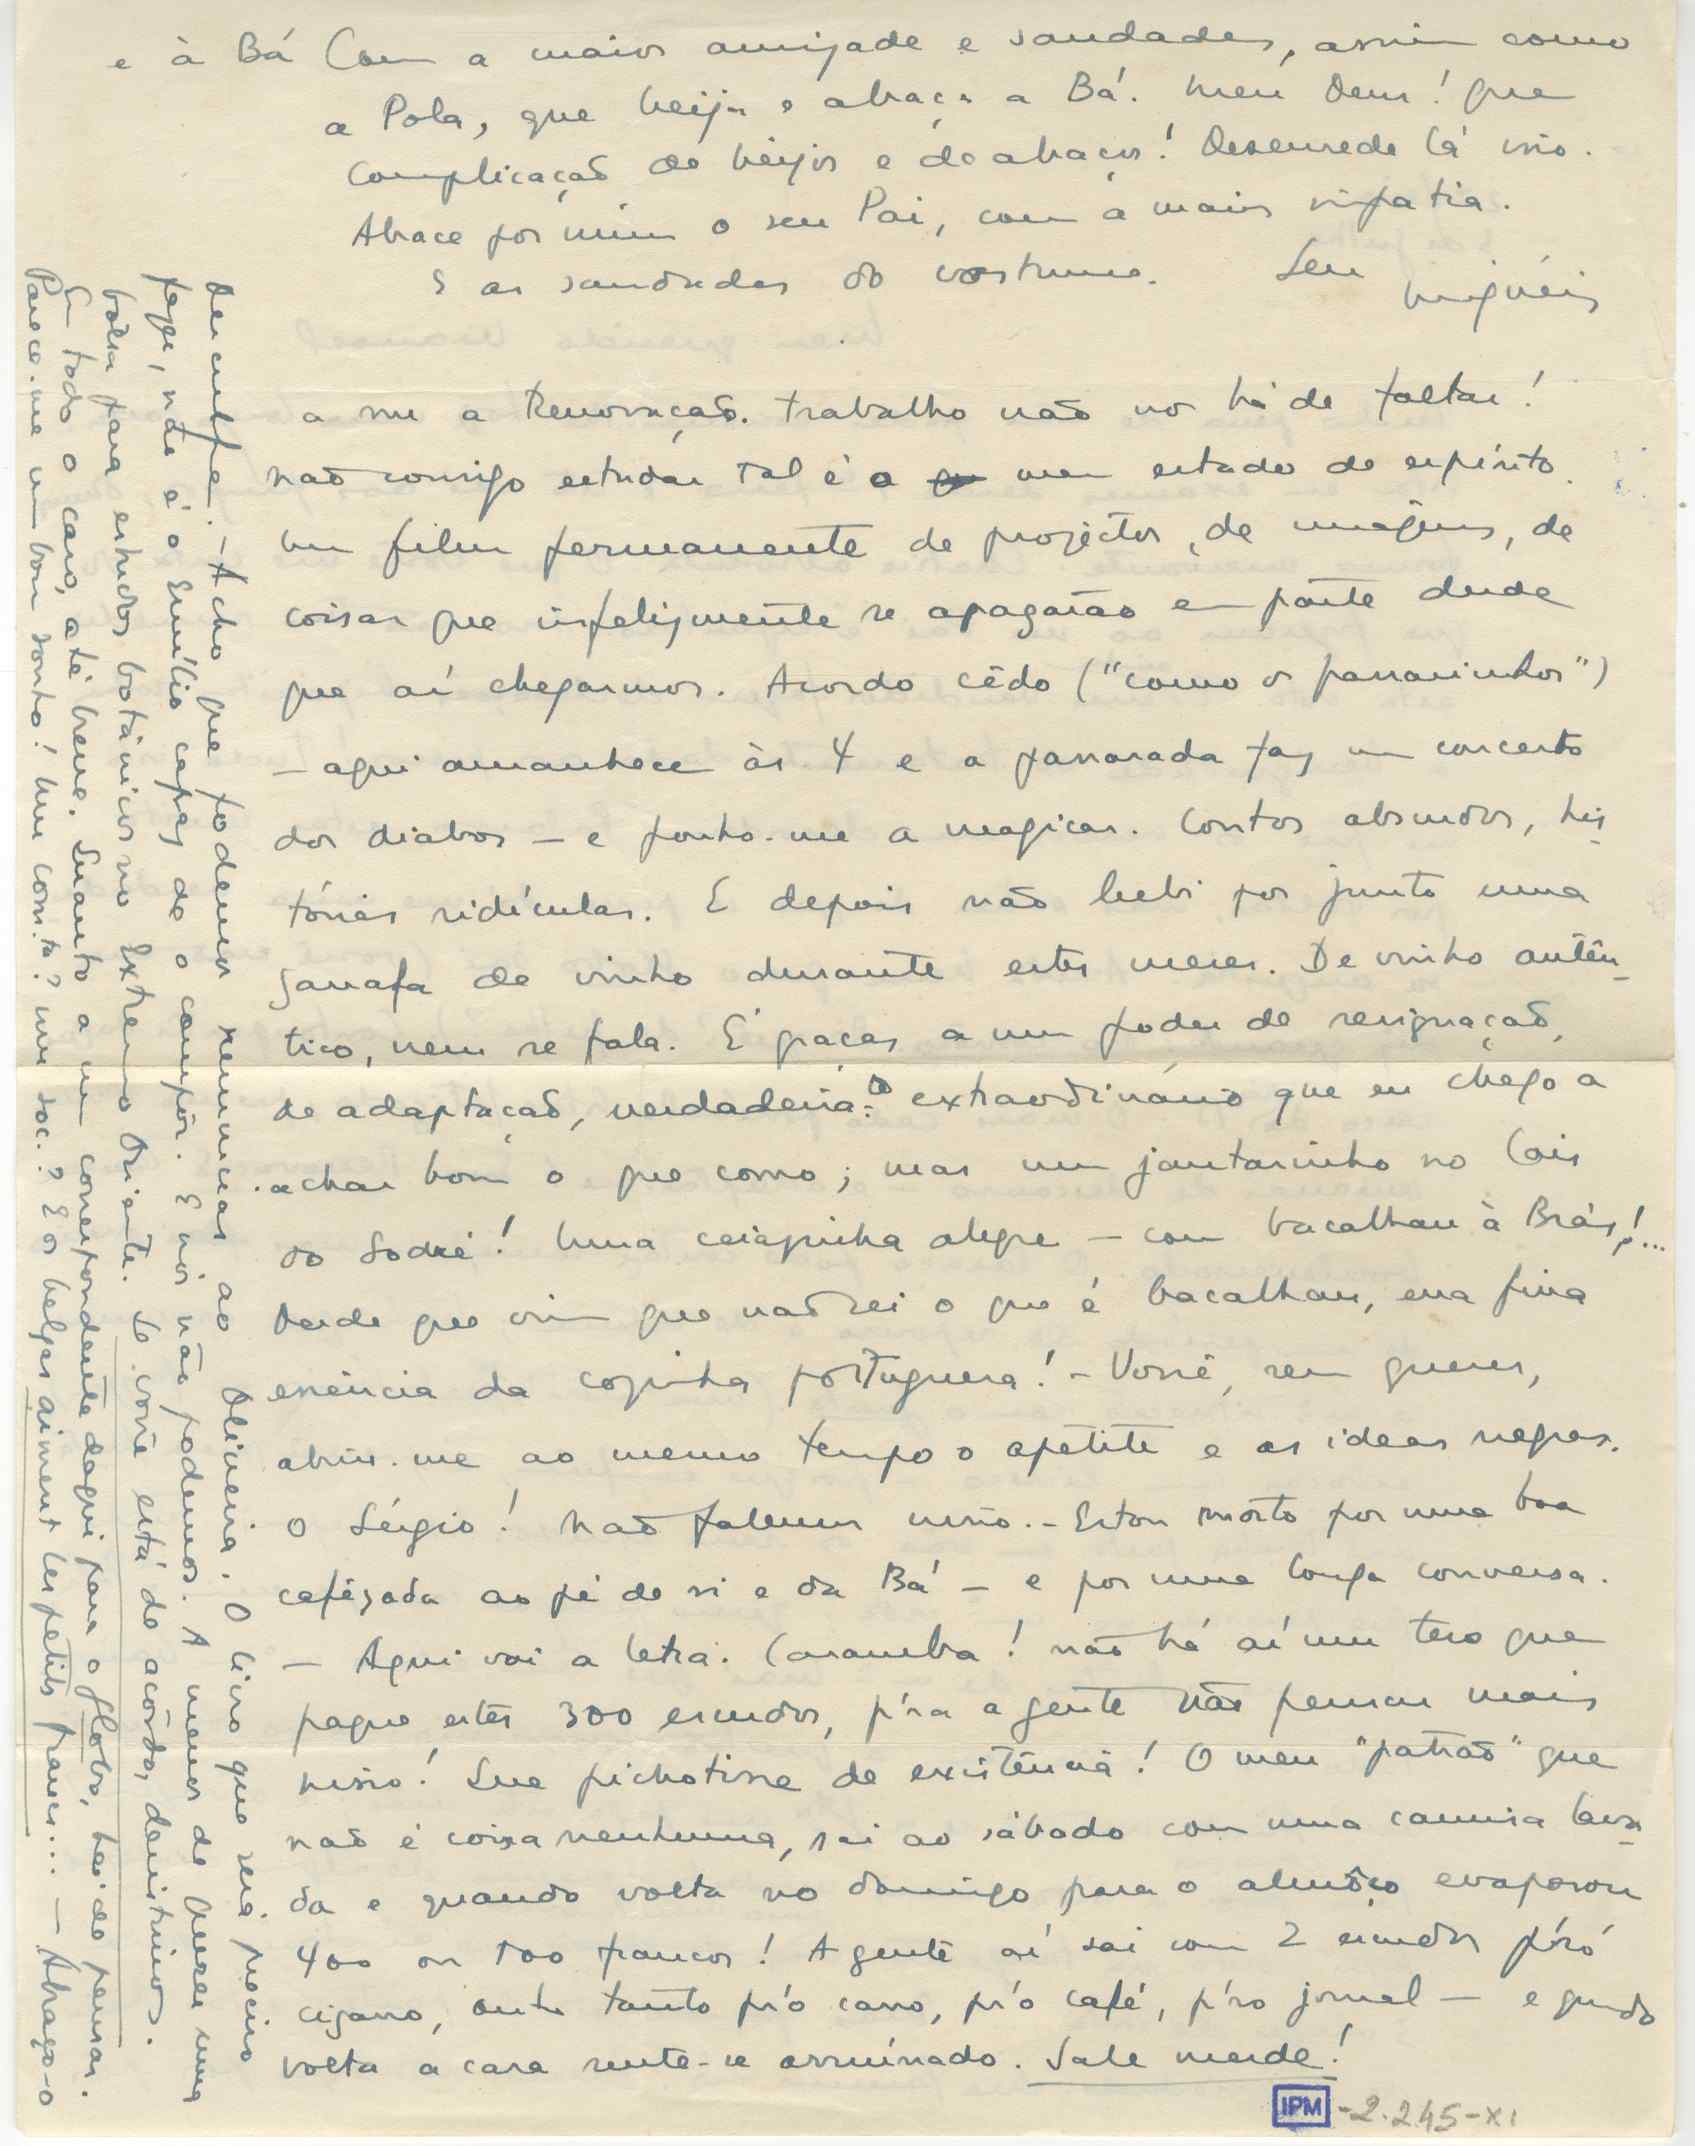 e à Bá Com a maior amizade e saudades, assim como
a Pola, que beija e abraça a Bá. Meu Deus! que
complicação de beijos e de abraços! Desenrede lá isso.
Abrace por mim o seu Pai, com a maior simpatia.
E as saudades do costume. Seu
Miguéis
a sua Renovação. Trabalho não nos há de faltar!
Não consigo estudar tal é o meu estado de espírito.
Um film permanente de projéctos, de imagens, de
coisas que infelizmente se apagarão em parte desde
que aí chegarmos. Acordo cêdo ("como os passarinhos")
— aqui amanhece às 4 e a passarada faz um concerto
dos diabos — e ponho-me a magicar. Contos absurdos, his-
tórias ridículas. E depois não bebi por junto uma
garrafa de vinho durante estes meses. De vinho autên-
tico, nem se fala. É graças a um poder de resignação,
de adaptação, verdadeira.te extraordinário que eu chego a
achar bom o que como; mas um jantarinho no Cais
do Sodré! Uma ceiazinha alegre — com bacalhau à Bráz!...
Desde que vim que não sei o que é bacalhau, essa fina
essência da cozinha portuguesa! - Você, sem querer,
abriu-me ao mesmo tempo o apetite e as ideas negras.
O Sérgio! Não falemos nisso. - Estou morto por uma boa
cafézada ao pé de si e da Bá — e por uma longa conversa.
— Aqui vai a letra. Caramba! não há aí um teso que
pague estes 300 escudos, p'ra a gente não pensar mais
nisso! Que pichotisse de existência! O meu "patrão" que
não é coisa nenhuma, sai ao sábado com uma camisa lava-
da e quando volta no domingo para o almôço evaporou
400 ou 500 francos! A gente aí sai com 2 escudos p'ró
cigarro, outro tanto p'ró carro, p'ró café, p'ró jornal — e quando
volta a casa sente-se arruinado. Sale merde!
Desculpe. - Acho que podemos renunciar ao Oliveira. O livro que seria preciso
fazer, não é o Emílio capaz de o compôr. E nós não podemos. A menos de querer uma
bolsa para estudos botânicos no Extremo Oriente. Se você está de acôrdo, desistimos.
Em todo o caso, até breve. Quanto a um correspondente daqui para o Globo, hei de pensar.
Parece-me um bom sonho! Um com.te? um soc.? E os belgas aiment les petits francs... — Abraço-o
IPM -2.245-XI